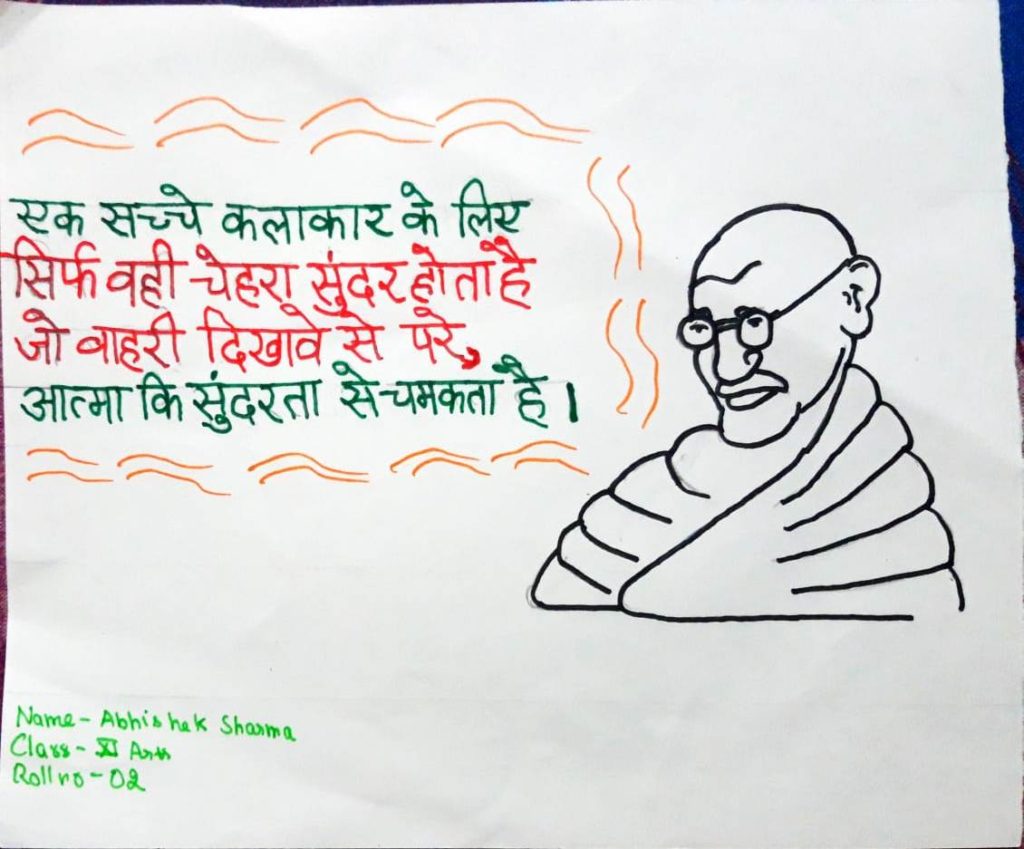 एक सच्चे कलाकार के लिए
सिर्फ वही चेहरा सुंदर होता है
जो बाहरी दिखावे से परे,
आत्मा कि सुंदरता से चमकता है।
Name - Abhishek Sharma
Class - XI Arts
Roll no - 02